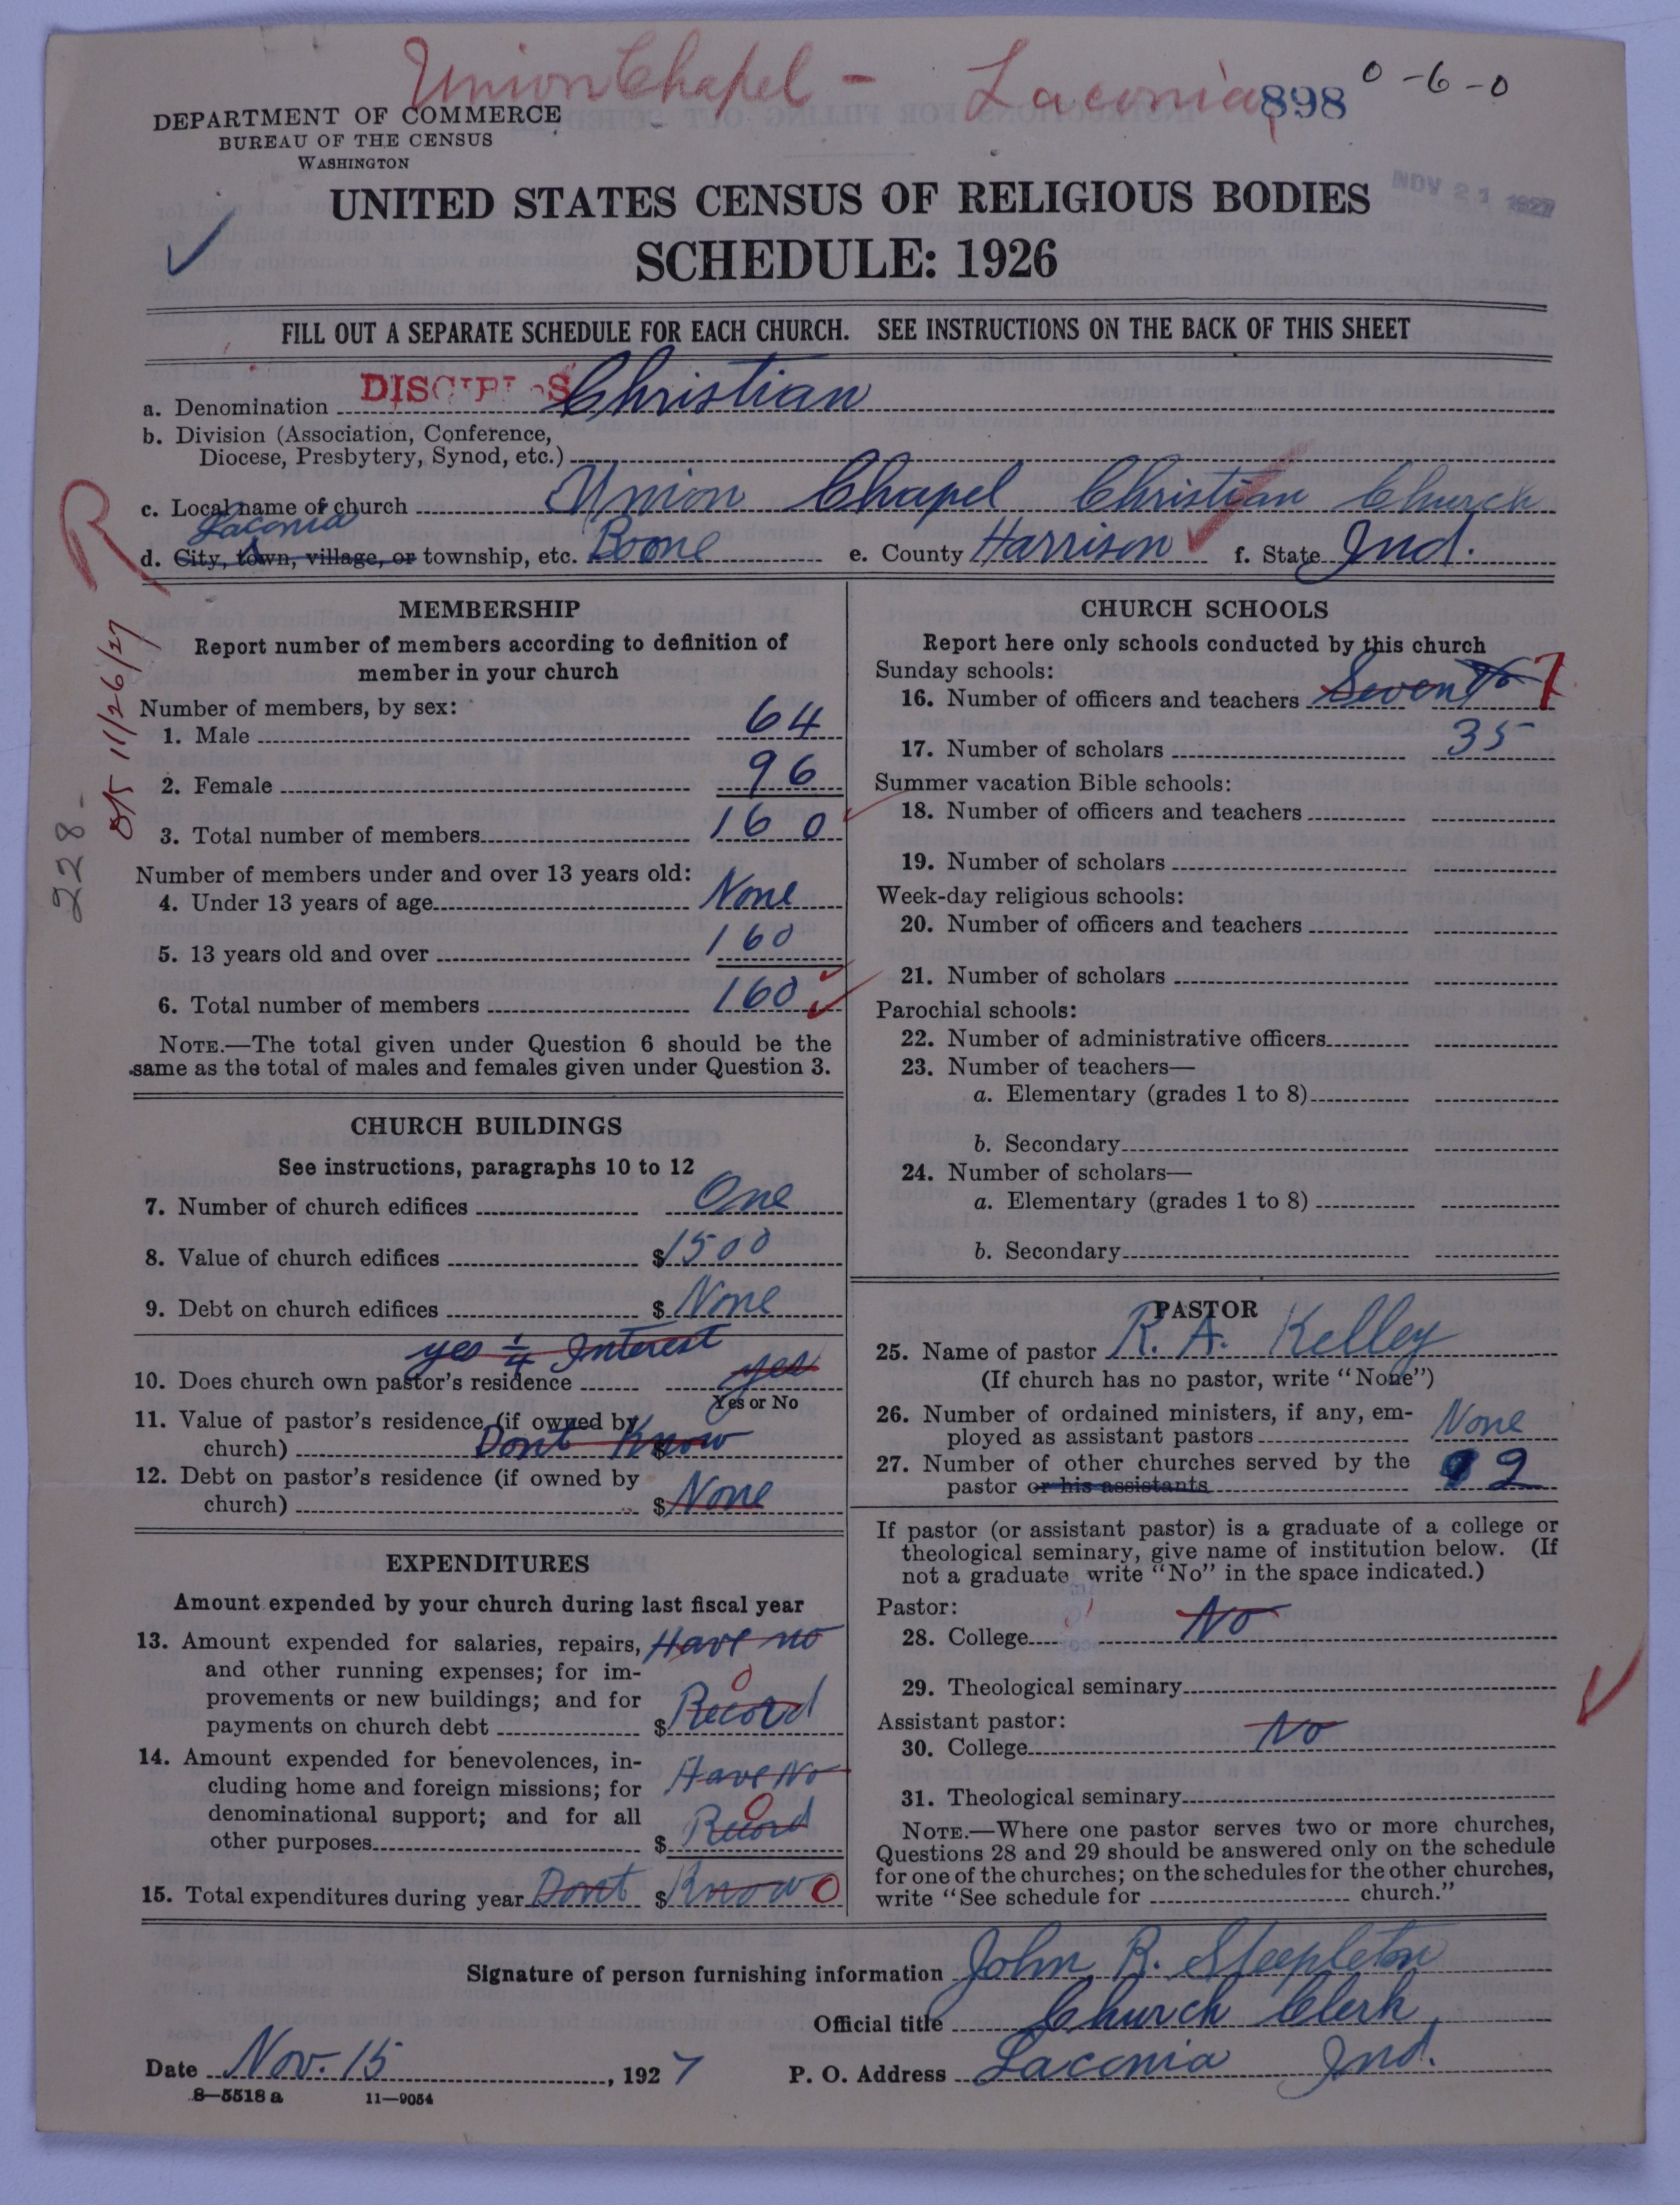 Union Chapel - Laconia 898 0-6-0
DEPARTMENT OF COMMERCE
BUREAU OF THE CENSUS
WASHINGTON
NOV 21 1927
UNITED STATES CENSUS OF RELIGIOUS BODIES
SCHEDULE: 1926
FILL OUT A SEPARATE SCHEDULE FOR EACH CHURCH. SEE INSTRUCTIONS ON THE BACK OF THIS SHEET
a. Denomination DISCIPLES Christian
b. Division (Association, Conference,
Diocese, Presbytery, Synod, etc.)
c. Local name of church Union Chapel Christian Church
Laconia
d. City, town, village, or township, etc. Boone e. County Harrison f. State Ind.
R
11/26/27
228-
MEMBERSHIP
Report number of members according to definition of
member in your church
Number of members, by sex:
1. Male 64
2. Female 96
3. Total number of members 160
Number of members under and over 13 years old:
4. Under 13 years of age None
5. 13 years old and over 160
6. Total number of members 160
NOTE.—The total given under Question 6 should be the
same as the total of males and females given under Question 3.
CHURCH BUILDINGS
See instructions, paragraphs 10 to 12
7. Number of church edifices One
8. Value of church edifices $1500
9. Debt on church edifices $ None
yes 1/4 Interest
10. Does church own pastor's residence yes
Yes or No
11. Value of pastor's residence (if owned by
church) Dont Know $
12. Debt on pastor's residence (if owned by
church) $ None
EXPENDITURES
Amount expended by your church during last fiscal year
13. Amount expended for salaries, repairs, Have no
and other running expenses; for im-
provements or new buildings; and for 0
payments on church debt $ Record
14. Amount expended for benevolences, in-
cluding home and foreign missions; for Have No
denominational support; and for all 0
other purposes $ Record
15. Total expenditures during year Dont $ Know 0
CHURCH SCHOOLS
Report here only schools conducted by this church
Sunday schools:
16. Number of officers and teachers Seven 7
17. Number of scholars 35
Summer vacation Bible schools:
18. Number of officers and teachers
19. Number of scholars
Week-day religious schools:
20. Number of officers and teachers
21. Number of scholars
Parochial schools:
22. Number of administrative officers
23. Number of teachers—
a. Elementary (grades 1 to 8)
b. Secondary
24. Number of scholars—
a. Elementary (grades 1 to 8)
b. Secondary
PASTOR
25. Name of pastor R. A. Kelley
(If church has no pastor, write "None")
26. Number of ordained ministers, if any, em-
ployed as assistant pastors None
27. Number of other churches served by the
pastor or his assistants 2
If pastor (or assistant pastor) is a graduate of a college or
theological seminary, give name of institution below. (If
not a graduate write "No" in the space indicated.)
Pastor:
28. College No
29. Theological seminary
Assistant pastor:
30. College No
31. Theological seminary
NOTE.—Where one pastor serves two or more churches,
Questions 28 and 29 should be answered only on the schedule
for one of the churches; on the schedules for the other churches,
write "See schedule for church."
Signature of person furnishing information John R. Steepleton
Official title Church Clerk
Date Nov. 15, 1927 P. O. Address Laconia Ind.
8—5518 a 11—9054